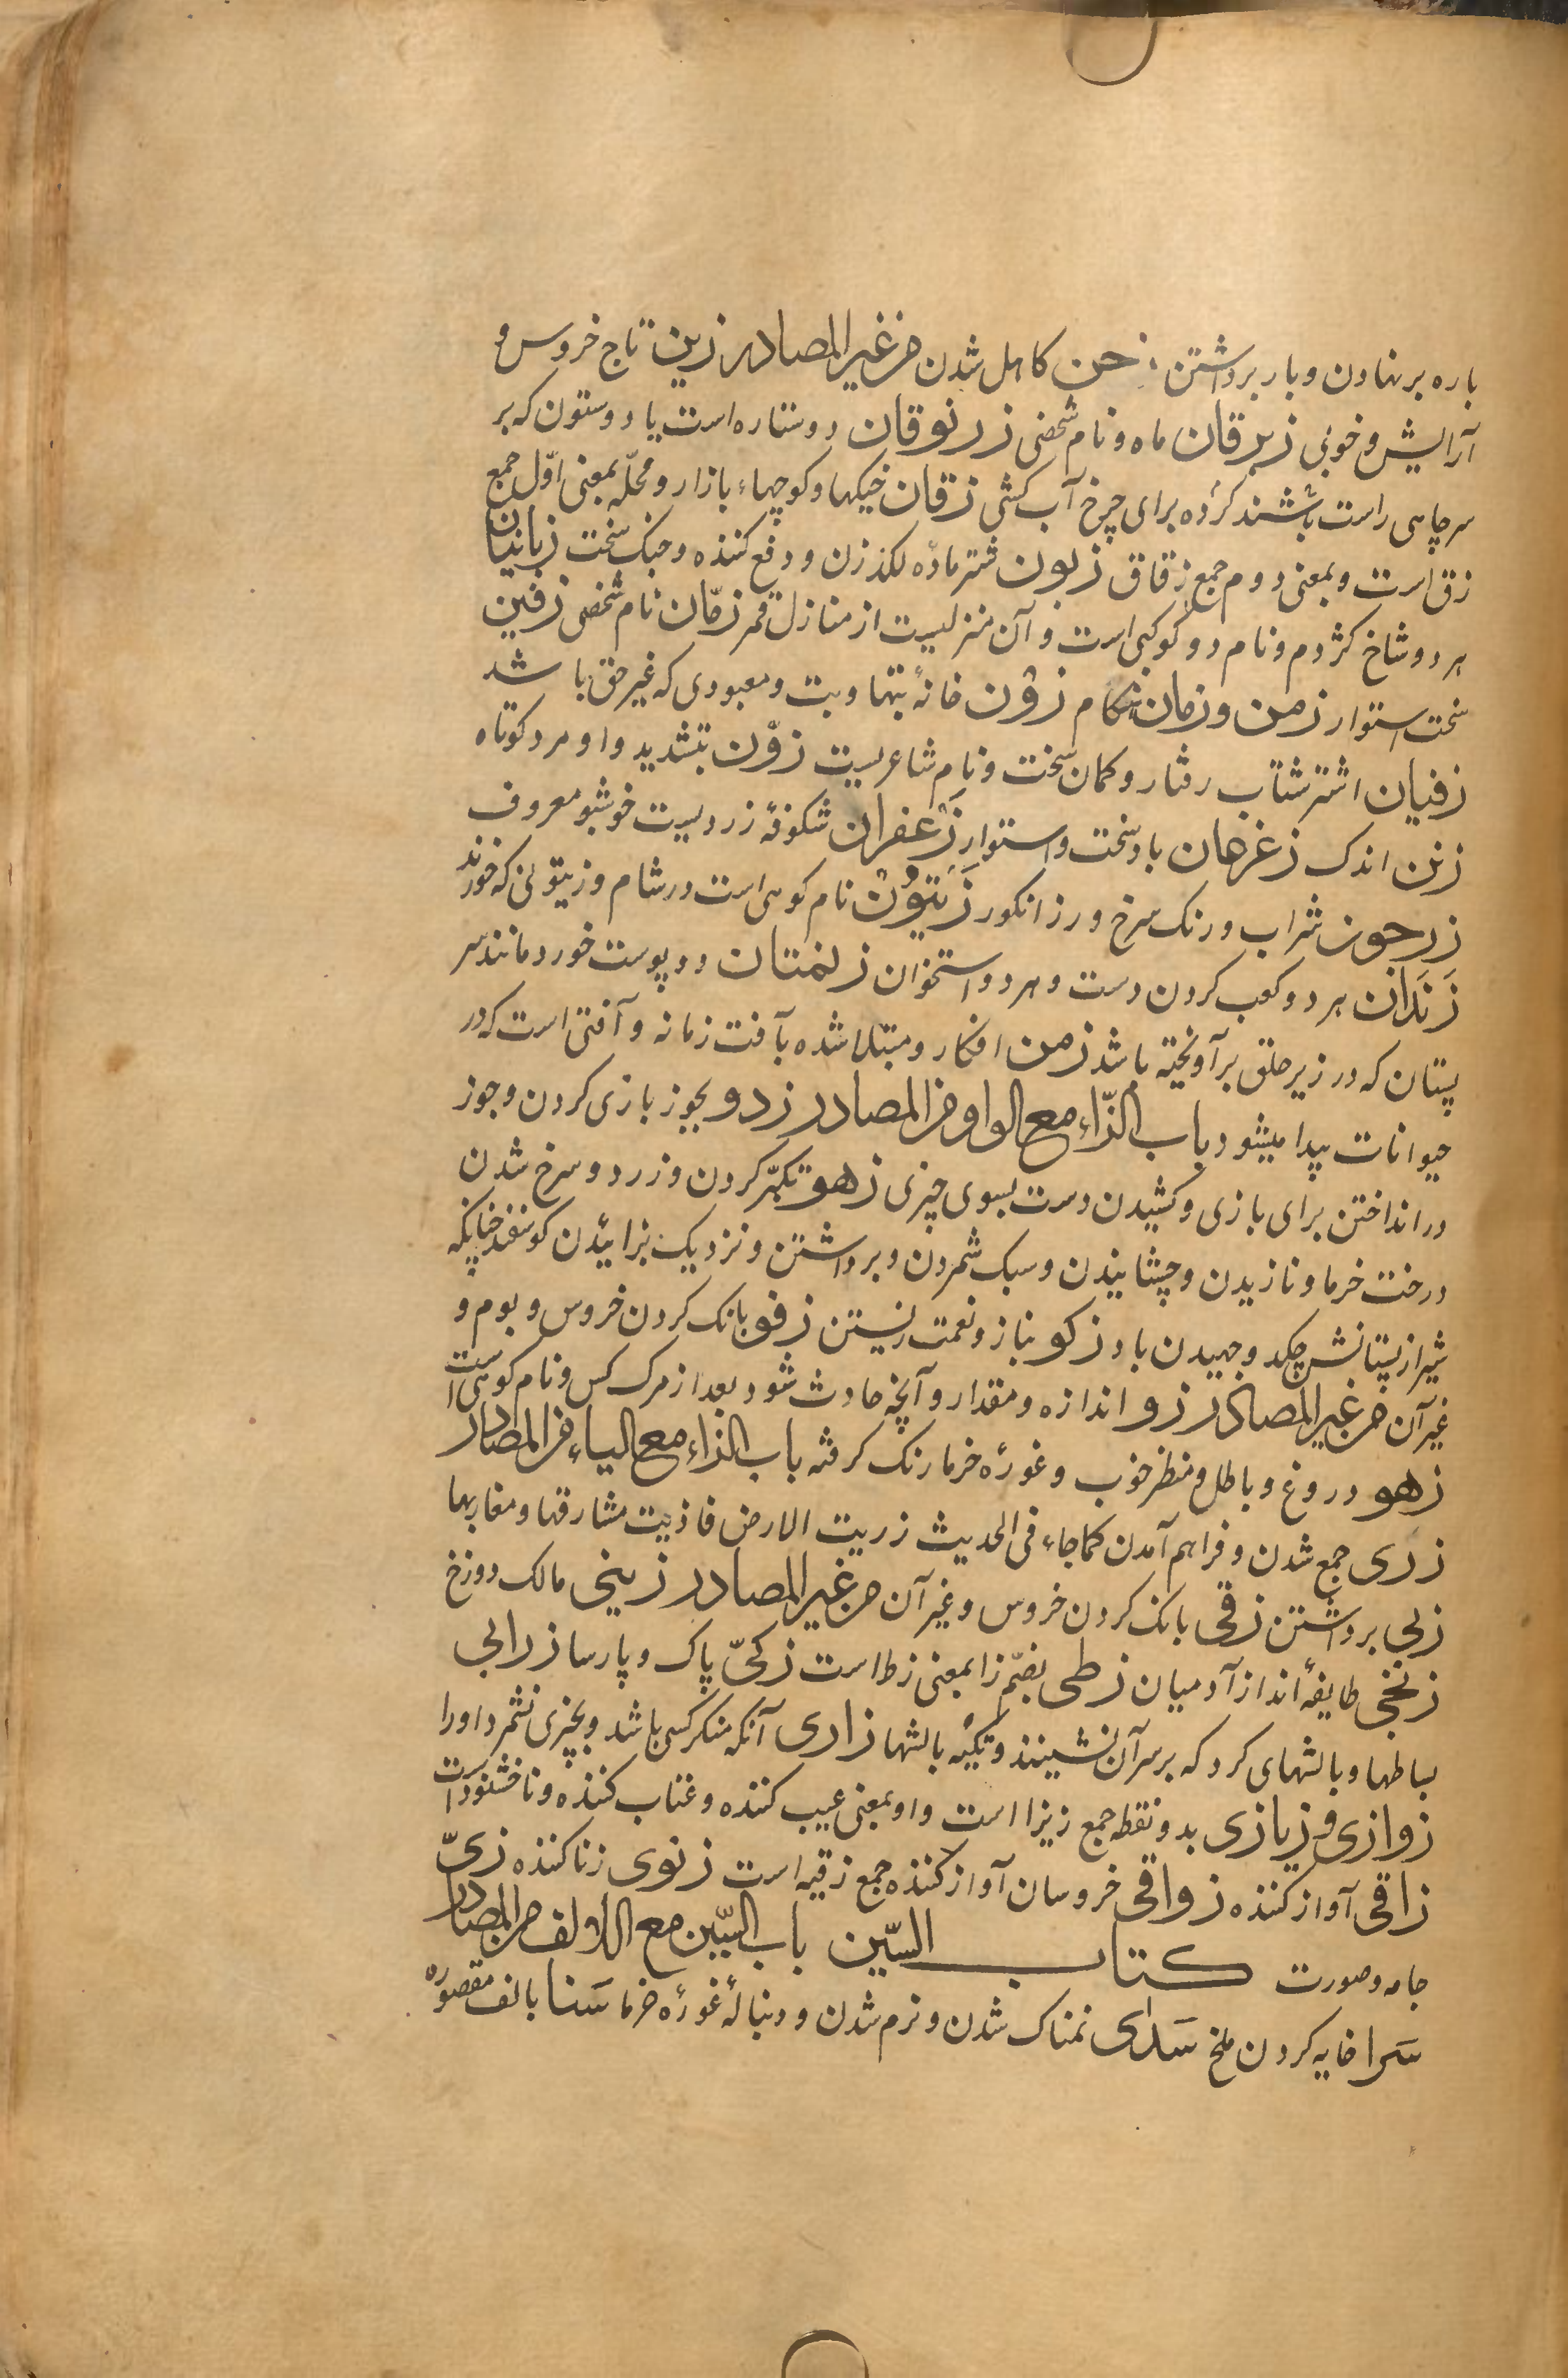 باره بر نهادن و بار برداشتن زحن کاهل شدن من غیر المصادر زین تاج خروس و
آرایش و خوبی زبرقان ماه و نام شخصی زرنوقان دو ستاره است یا دو ستون که بر
سر چاهی راست باشند کرده برای چرخ آب کشی زقان خیکها و کوچهاء بازار و محلّه بمعنی اوّل جمع
زق است و بمعنی دوم جمع زقاق زبون شتر مادّه لکد زن و دفع کننده و جنک سخت زبانیان
هر دو شاخ کژدم و نام دو کوکبی است و آن منزلیست از منازل قمر زمّان نام شخصی زفین
سخت استوار زمن و زمان هنکام زوْن خانۀ بتها و بت و معبودی که غیر حق باشد
زفیان اشتر شتاب رفتار و کمان سخت و نام شاعریست زوّن بتشدید واو مرد کوتاه
زنن اندک زغرهان باد سخت و استوار زَعْفران شکوفۀ زردیست خوشبو معروف
زرجون شراب و رنک سرخ و رز انکور زَیتوُنْ نام کوهی است در شام و زیتونی که خورند
زَندَان هر دو کعب کردن دست و هر دو استخوان زلنمتان دو پوست خورد مانند سر
پستان که در زیر حلق برآویخته باشد زمن افکار و مبتلا شده بآفت زمانه و آفتی است که در
حیوانات پیدا میشود باب الزّاء مع الواو من المصادر زدو بجوز بازی کردن و جوز
در انداختن برای بازی و کشیدن دست بسوی چیزی زهو تکبّر کردن و زرد و سرخ شدن
درخت خرما و نازیدن و چشانیدن و سبک شمردن و برداشتن و نزدیک بزائیدن کوسفند چنانکه
شیر از پستانش چکد و جهیدن باد زکو بناز و نعمت زیستن زقو بانک کردن خروس و بوم و
غیر آن من غیر المصادر زو اندازه و مقدار و آنچه حادث شود بعد از مرک کس و نام کوهی است
زهو دروغ و باطل و منظر خوب و غورۀ خرما رنک کرفته باب الزاء مع الیاء من المصادر
زری جمع شدن و فراهم آمدن کما جاء فی الحدیث زریت الارض فاذیت مشارقها و مغاربها
زبی برداشتن زقی بانک کردن خروس و غیر آن من غیر المصادر زبنی مالک دوزخ
زنجی طایفۀ اند از آدمیان زطی بضمّ زا بمعنی زط است زکیّ پاک و پارسا زرابی
بساطها و بالشهای کرد که بر سر آن نشینند و تکیه بالشها زاری آنکه منکر کسی باشد و بچیزی نشمرد او را
زوازی و زیازی بدو نقطه جمع زیزا است و او بمعنی عیب کننده و عتاب کننده و ناخشنود است
زاقی آواز کننده زواقی خروسان آواز کننده جمع زقیه است زنوی زنا کننده زیّ
جامه و صورت کتاب السّین باب السّین مع الالف من المصادر
سَرا خایه کردن ملخ سَدای نمناک شدن و نرم شدن و دنبالۀ غورۀ خرما سَنا بالف مقصوره